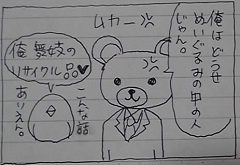 俺はどうせ
ぬいぐるみの中の人
じゃん。
ムカー
俺舞妓の
リサイクル品♥
こんな話
ありえん。